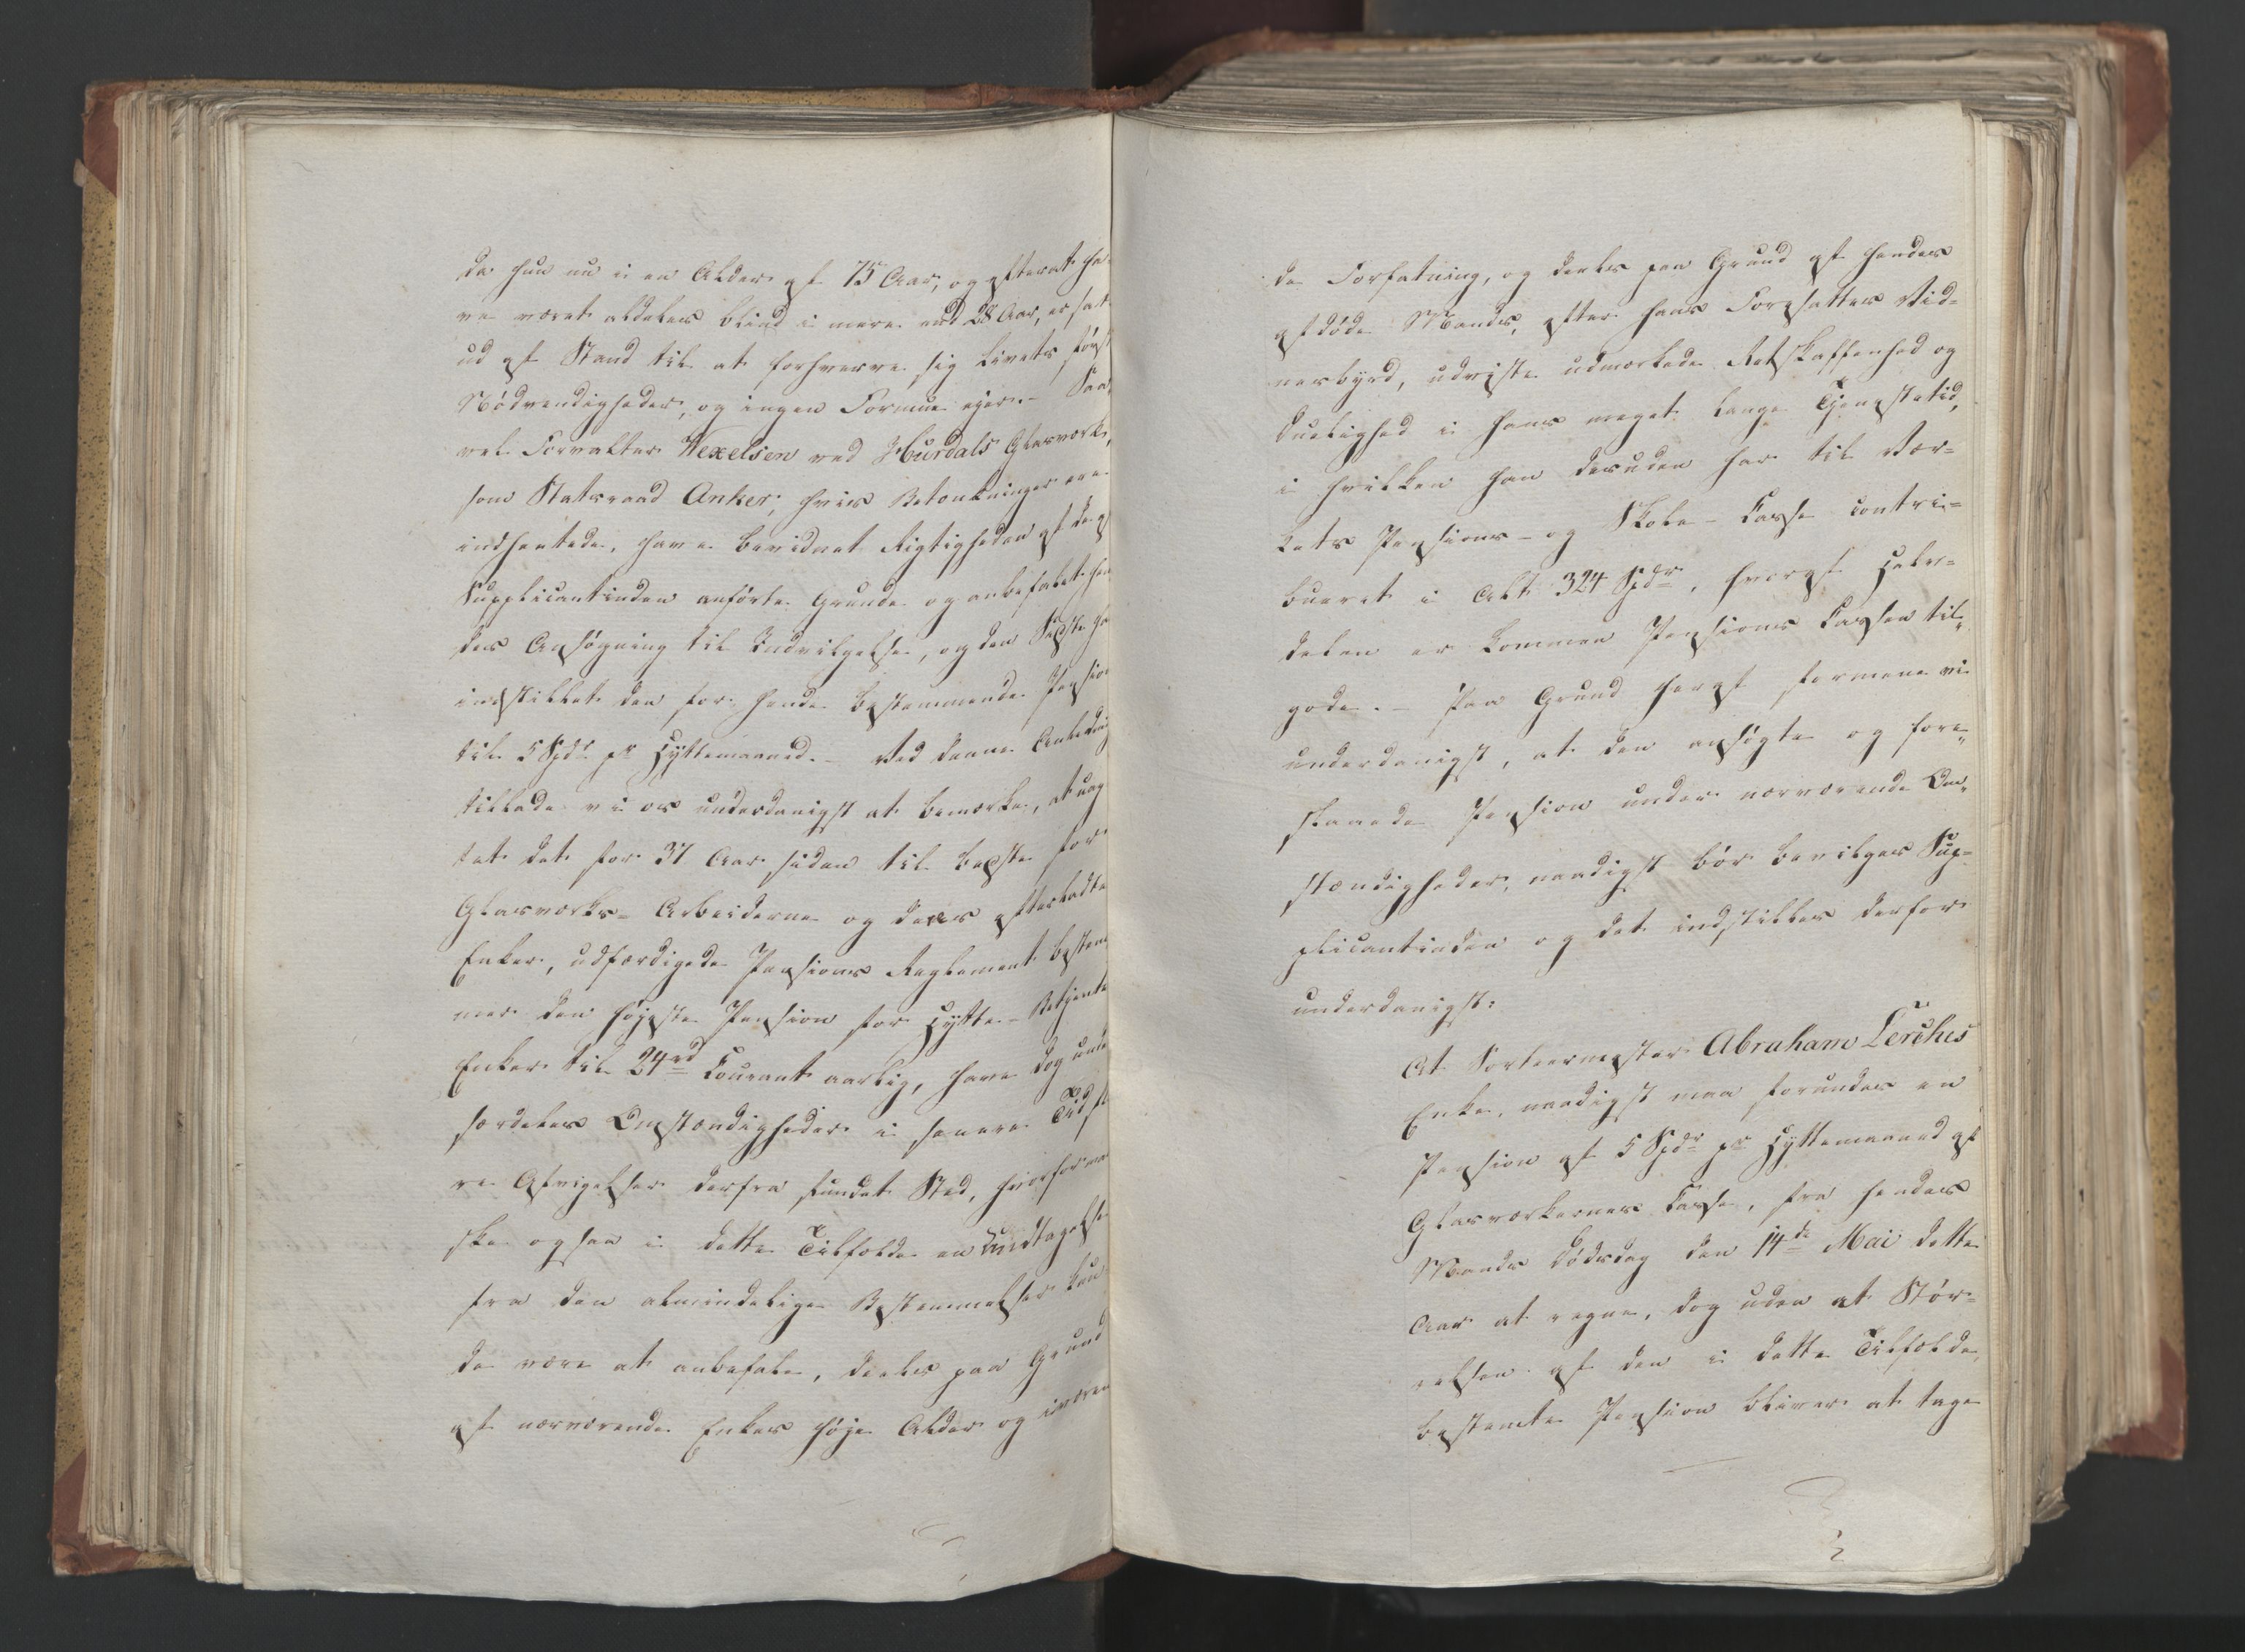 da hun nu i en Alder af 75 Aar, og efterat ha
ve været aldeles blind i mere end 28 Aar, er sat
ud af Stand til at forhverve sig Livets først
Nödvendigheder, og ingen Formue ejer. – Saa
vel Forvalter Wexelsen ved Hurdals Glasværk,
som Statsraad Anker, hvis Betænkninger ere
indhentede, have bevidnet Rigtigheden af de af
Supplicantinden anförte Grunde og anbefalet hen
des Ansögning til Indvilgelse, og den Sidste ha
indstillet den for hende bestemmende Pension
til 5 Spd. pr Hyttemaaned. – Ved denne Anledning
tillade vi os underdanigst at bemærke, at uag
tet det for 37 Aar siden til bedste for
Glasværks-Arbeiderne og deres efterladte
Enker, udfærdigede Pensions Reglement bestem
mer den højeste Pension for Hytte-Betjente
Enker til 24 rd Courant aarlig, have dog unde
særdeles Omstændigheder i senere Tid fl
re Afvigelser derfra fundet Sted, hvorfor maa
ske ogsaa i dette Tilfælde en Undtagelse
fra den almindelige Bestemmelse kun
de være at anbefale, deels paa Grund
af nærværende Enkes høje Alder og
de Forfatning, og deels paa Grund af hendes
afdöde Mands, efter hans Foresattes Vid-
nesbyrd, udviste udmærkede Retskaffenhed og
Duelighed i hans meget lange Tjenestetid,
i hvilken han desuden har til Vær-
kets Pensions- og Skole-Casse contri-
bueret i Alt 324 Spdr, hvoraf Halv-
delen er kommen Pensions Cassen til
gode. – Paa Grund heraf formene vi
underdanigst, at den ansögte og fore
slaaede Pension under nærværende Om
stændigheder, naadigst bör bevilges Sup-
plicantinden og det indstilles derfor
underdanigst:
At Sorteermester Abraham Lerches
Enke, naadigst maa forundes en
Pension af 5 Spdr pr Hyttemaaned af
Glasværkernes Casse, fra hendes
Mands Dödsdag den 14de Mai dette
Aar at regne, dog uden at Stör-
relsen af den i dette Tilfælde
bestemte Pension bliver at tage